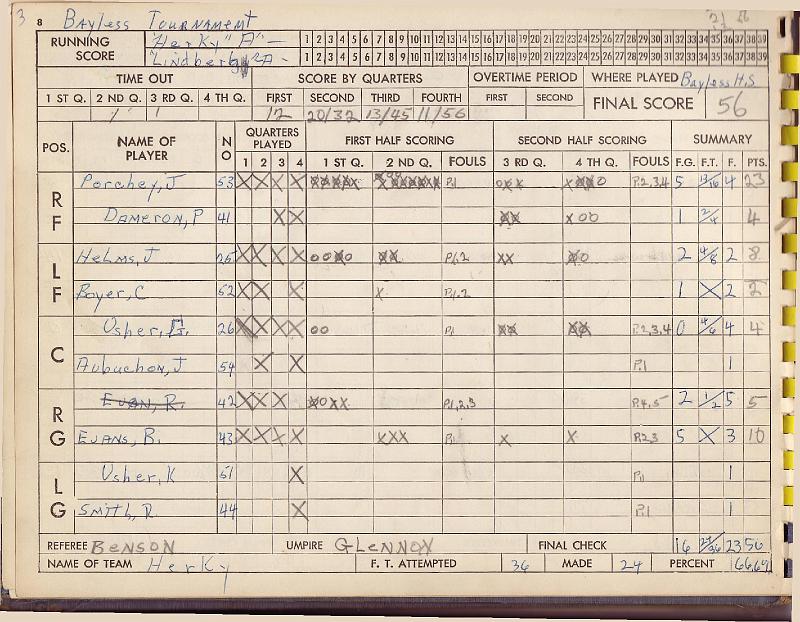 3 8 Bayless Tournament
RUNNING "Herky" A" - 1 2 3 4 5 6 7 8 9 10 11 12 13 14 15 16 17 18 19 20 21 22 23 24 25 26 27 28 29 30 31 32 33 34 35 36 37 38 39
SCORE "Lindbergh" A - 1 2 3 4 5 6 7 8 9 10 11 12 13 14 15 16 17 18 19 20 21 22 23 24 25 26 27 28 29 30 31 32 33 34 35 36 37 38 39
TIME OUT SCORE BY QUARTERS OVERTIME PERIOD WHERE PLAYED Bayless H.S
1 ST Q. 2 ND Q. 3 RD Q. 4 TH Q. FIRST SECOND THIRD FOURTH FIRST SECOND FINAL SCORE 56
12 20/32 13/45 11/56
POS. NAME OF PLAYER NO QUARTERS PLAYED FIRST HALF SCORING SECOND HALF SCORING SUMMARY
1 2 3 4 1 ST Q. 2 ND Q. FOULS 3 RD Q. 4 TH Q. FOULS F.G. F.T. F. PTS.
RF Porchey, J 53 X X X X P.1 P.2,3,4 5 13/16 4 23
Dameron, P 41 X X XX X00 1 2/4 4
LF Helms, J 25 X X X X 00X0 XX P.1,2 XX X0 2 4/8 2 8
Boyer, C 52 X X X X P.1,2 1 X 2 2
C Usher, G. 26 X X X X 00 P.1 XX XX P.2,3,4 0 4/6 4 4
Aubuchon, J 54 X X P.1 1
RG Evan, R. 42 X X X X0XX P.1,2,3 P.4,5 2 1/2 5 5
Evans, B. 43 X X X X XXX P.1 X X P.2,3 5 X 3 10
LG Usher, K 51 X P.1 1
Smith, R 44 X P.1 1
REFEREE Benson UMPIRE Glennon FINAL CHECK 16 24/36 23 56
NAME OF TEAM Herky F. T. ATTEMPTED 36 MADE 24 PERCENT 66.67